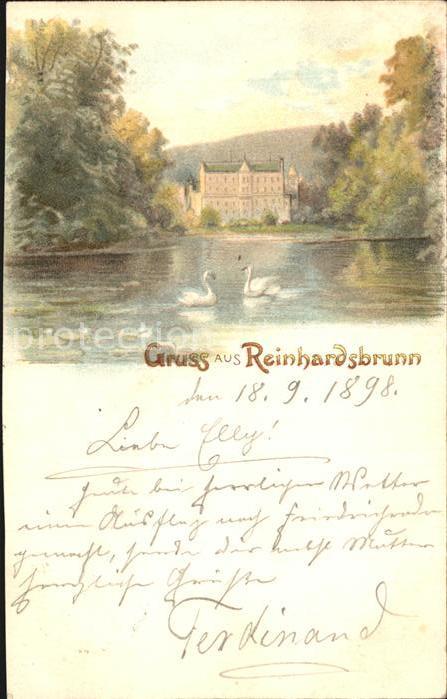 protection
Gruss aus Reinhardsbrunn
den 18. 9. 1898.
Liebe Elly!
Heute bei herrlichem Wetter
einen Ausflug nach Friedrichroda
gemacht, sende dir nebst Mutter
herzliche Grüsse
Ferdinand